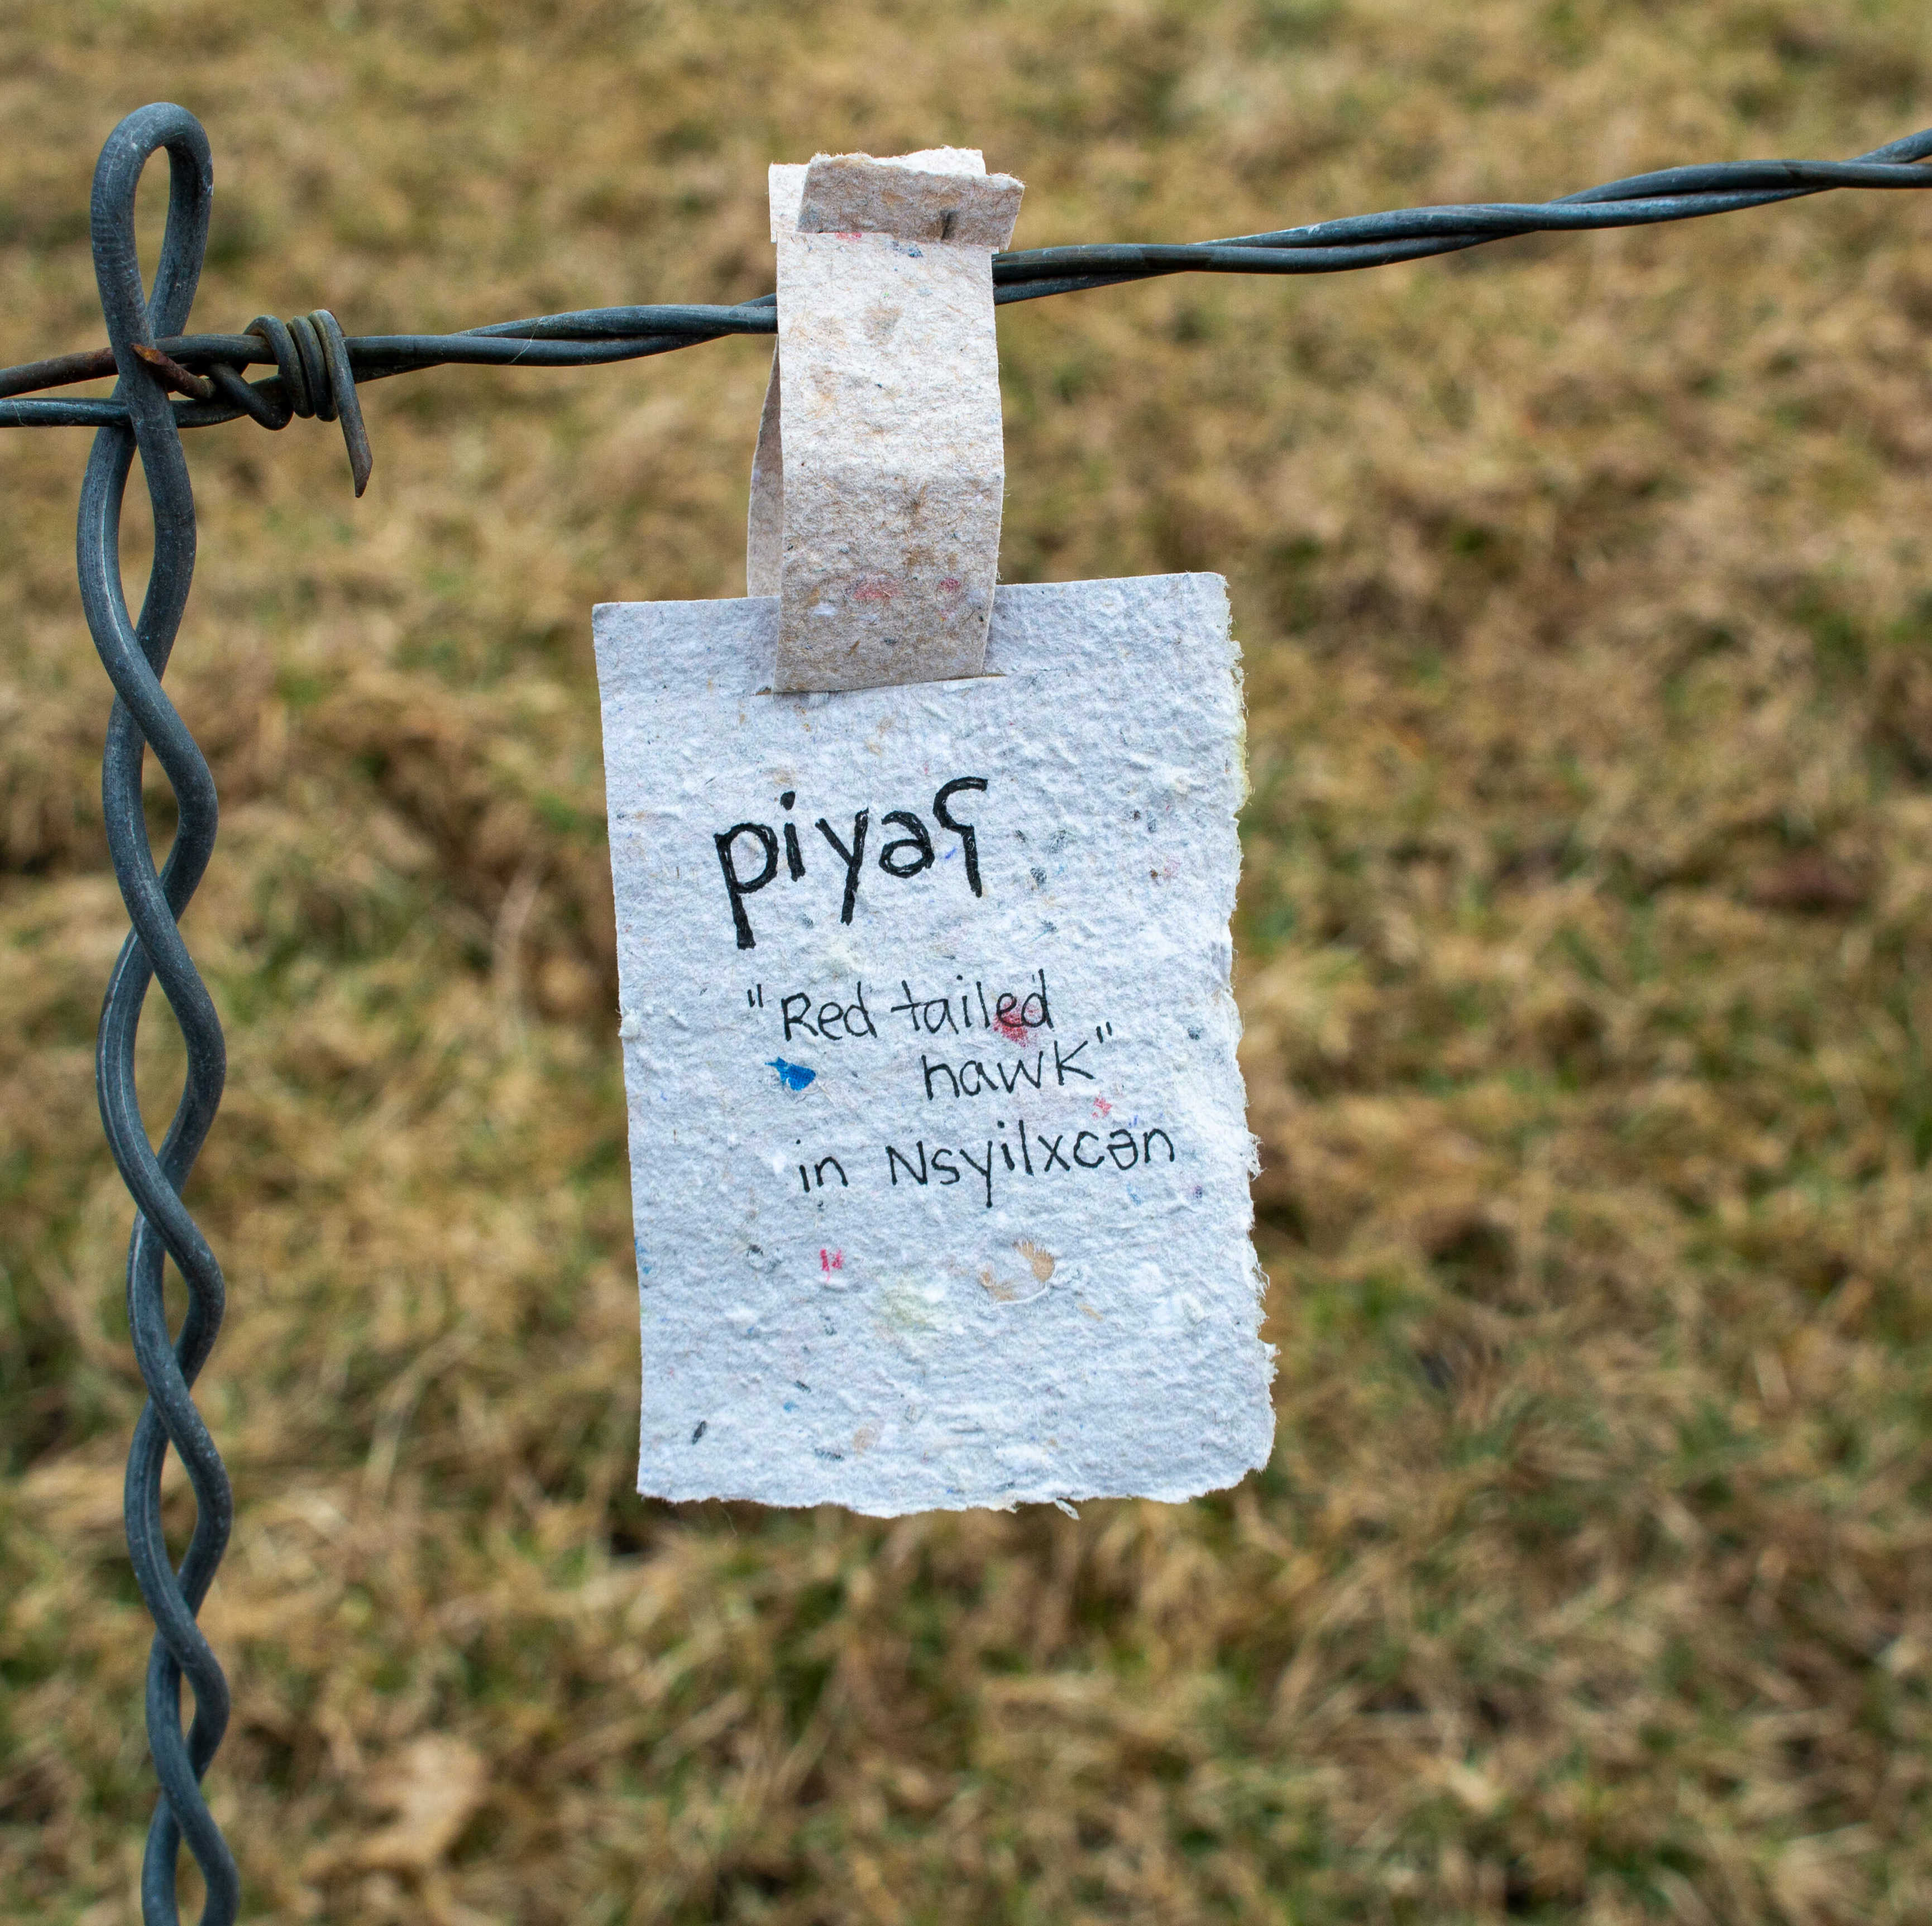 piyəʕ
"Red tailed
hawk"
in Nsyilxcən